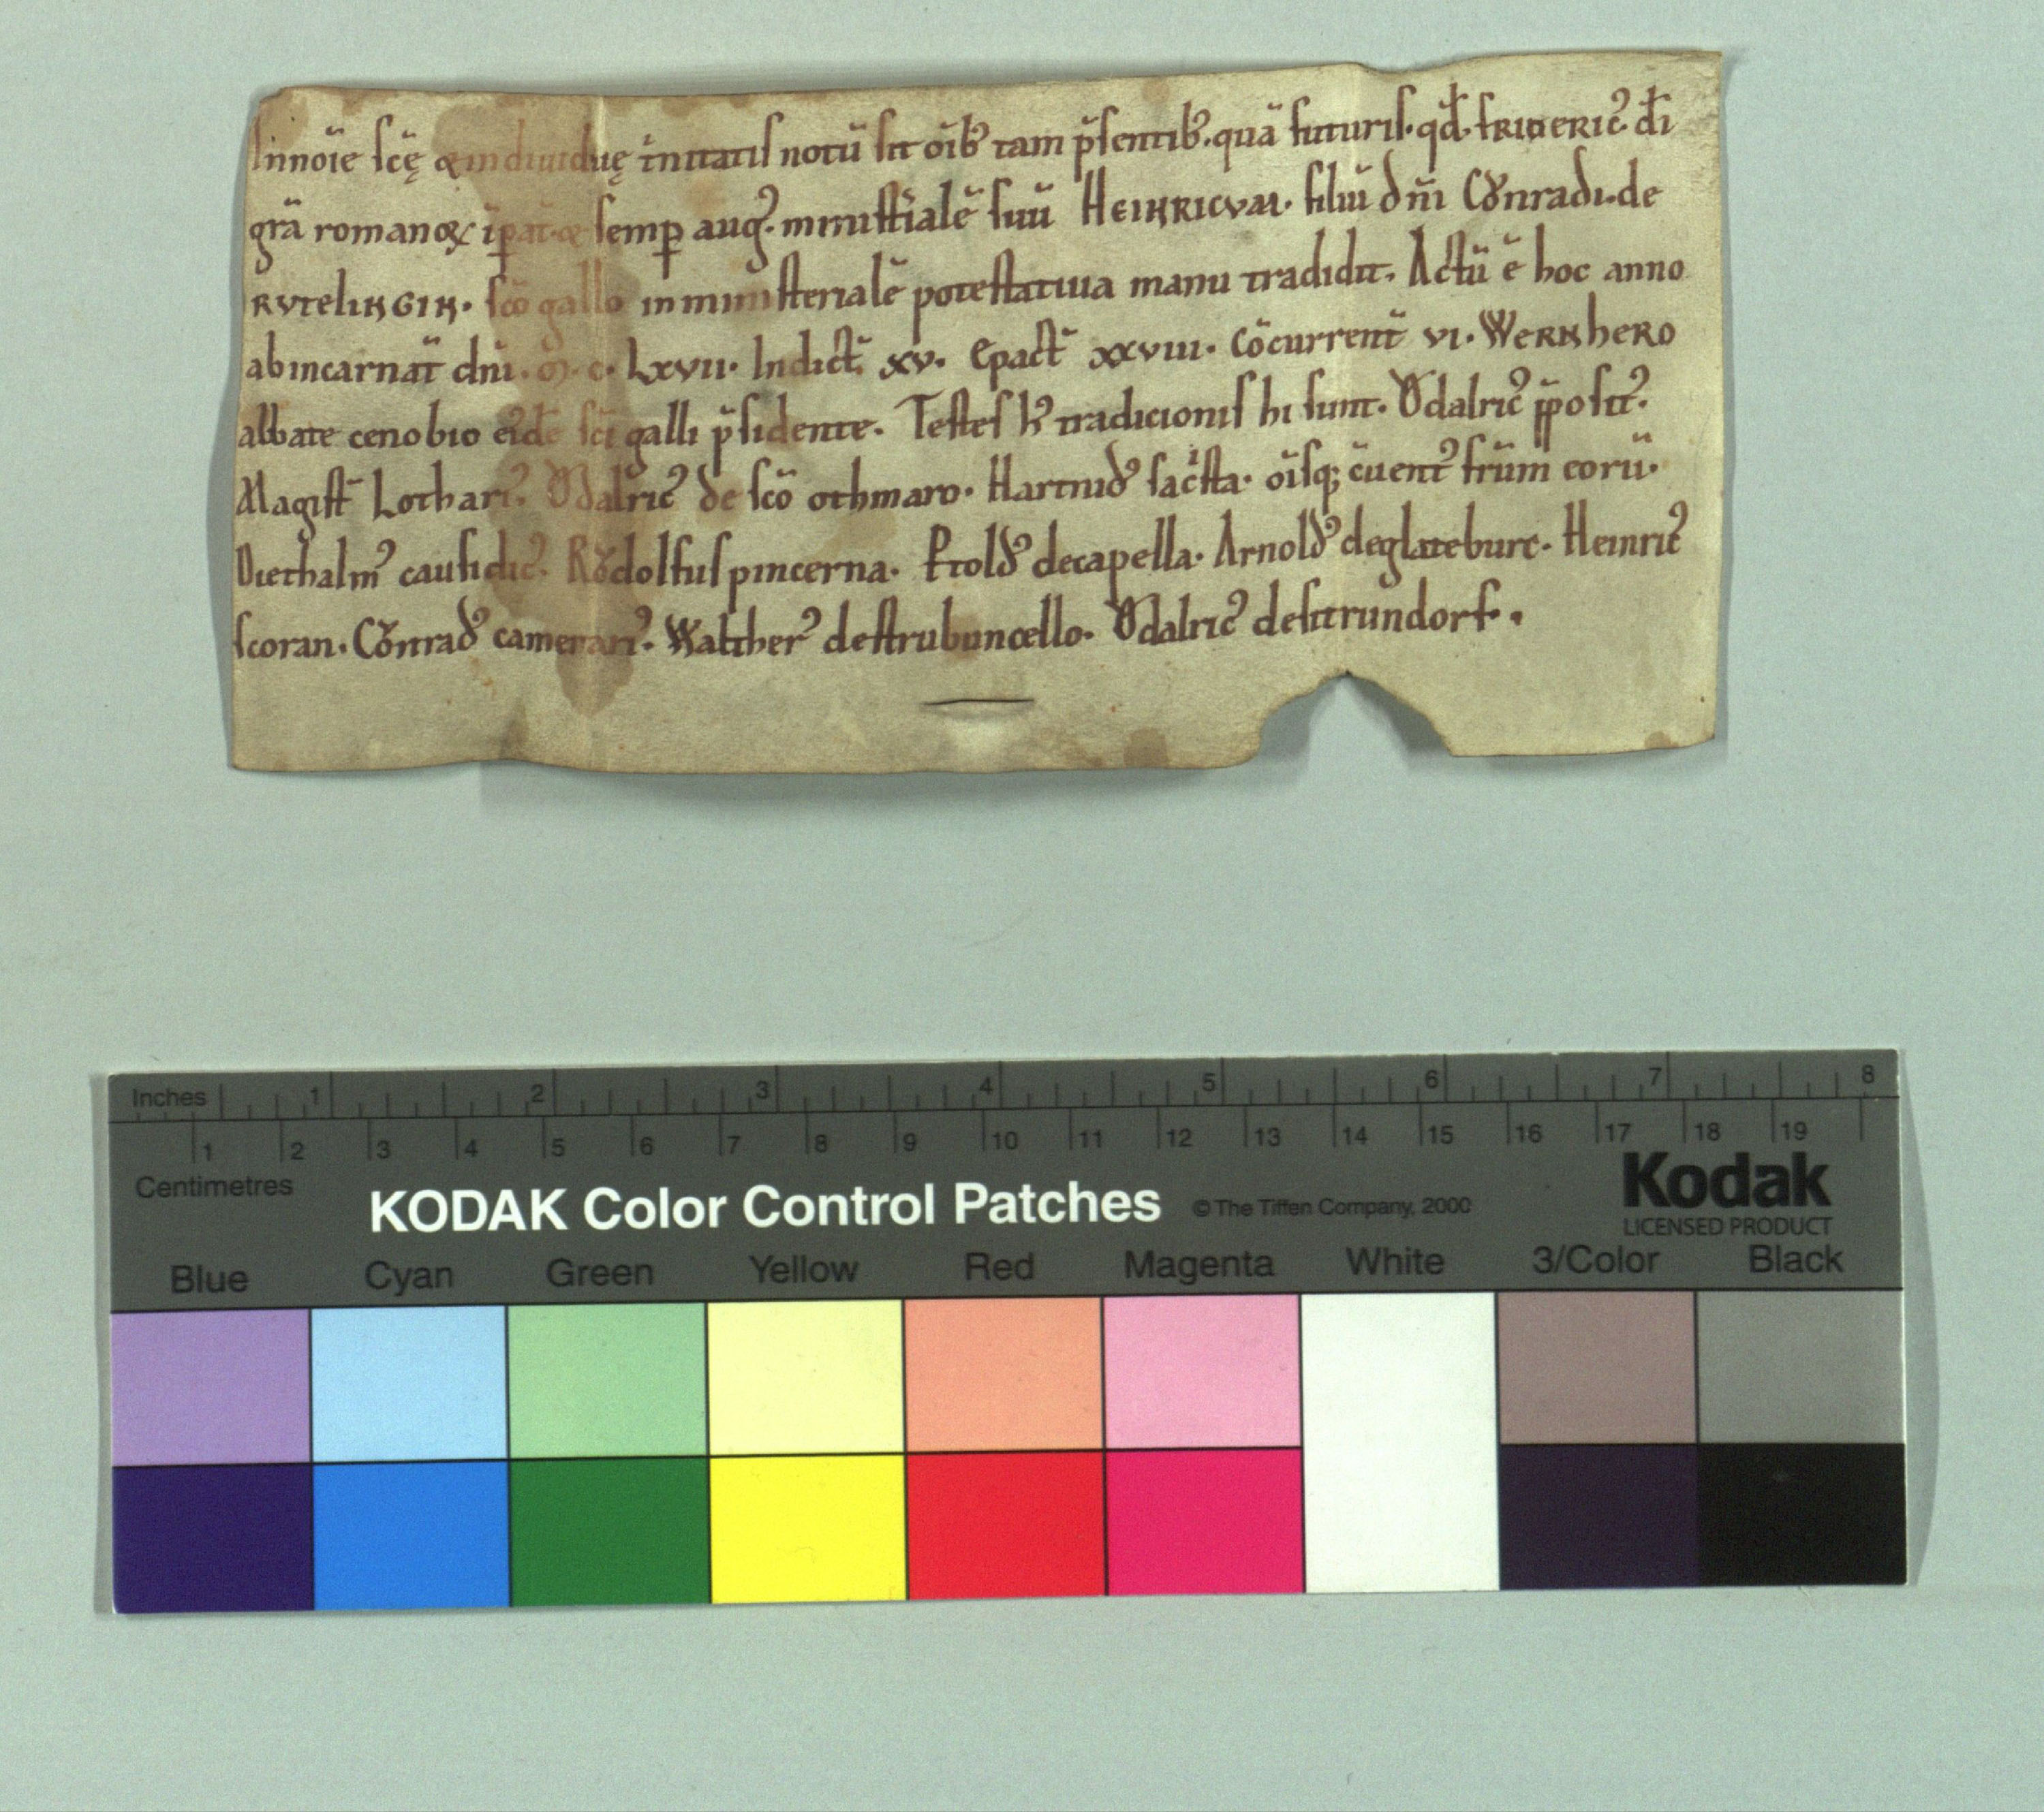 In noīe scę̄ & indiuiduę t̄nitatis notū sit oīb; tam p̄sentib;. quā futuris. qđ. FRIDERIC᾿ dī
grā romanoꝝ īpat̄. & semꝑ aug᾿. ministīalē suū HEINRICVM. filiū dn̄i Cǒnradi. de
RVTELINGIN. scō gallo in ministerialē potestatiua manu tradidit. Actū ē hoc anno
ab incarnat̄ dn̄i. M̄. c. Lxvii. Indict̄. xv. Epact̄ xxviii. Cōcurrent̄ vi. WERNHERO
abbate cenobio eidē sc̄i galli p̄sidente. Testes h᾿ tradicionis hi sunt. Vͦdalric᾿ p̄posit᾿.
Magist̄ Lothari᾿. Vͦdalric᾿ de scō othmaro. Hartnid᾿ sac᾿sta. oīsq; cuent᾿ frūm eorū.
Diethalm᾿ causidic᾿. Rǒdolfus pincerna. Rtold᾿ de capella. Arnold᾿ de glateburc. Heinric᾿
scoran. Cǒnrad᾿ camerari᾿. Walther᾿ de strubuncello. Vͦdalric᾿ de sitrundorf.
Inches 1 2 3 4 5 6 7 8
1 2 3 4 5 6 7 8 9 10 11 12 13 14 15 16 17 18 19
Centimetres
KODAK Color Control Patches © The Tiffen Company, 2000 Kodak
LICENSED PRODUCT
Blue Cyan Green Yellow Red Magenta White 3/Color Black